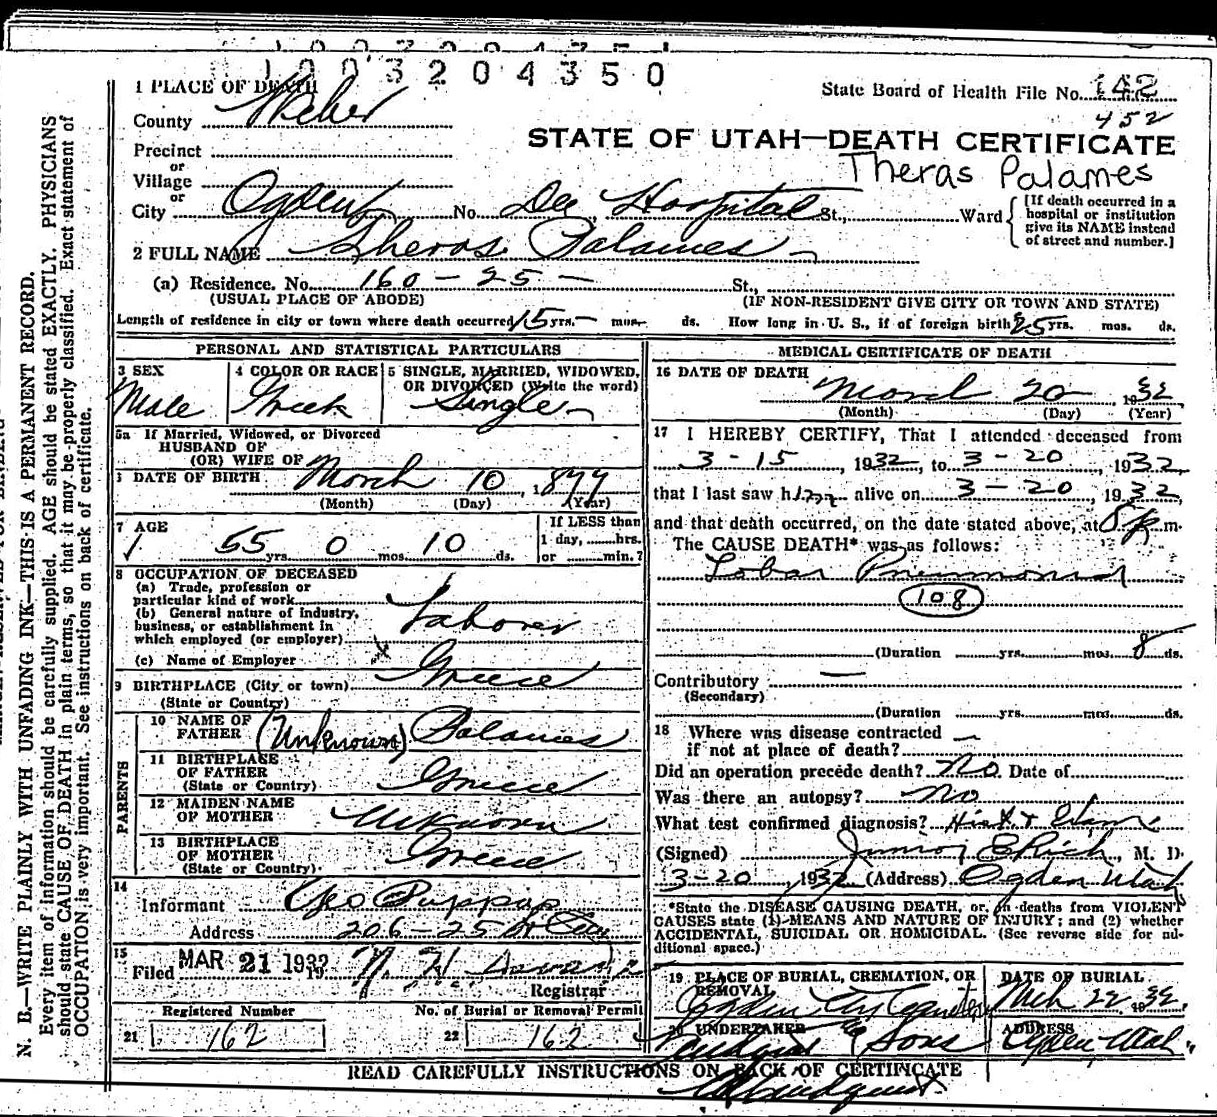 1003204350
1 PLACE OF DEATH
State Board of Health File No. 142
452
County Weber
STATE OF UTAH—DEATH CERTIFICATE
Theras Palames
Precinct
or
Village
or
City Ogden No. Dee Hospital St., Ward
[If death occurred in a hospital or institution give its NAME instead of street and number.]
2 FULL NAME Theros Palames
(a) Residence. No. 160 - 25 - St.,
(USUAL PLACE OF ABODE) (IF NON-RESIDENT GIVE CITY OR TOWN AND STATE)
Length of residence in city or town where death occurred 15 yrs. - mos. ds. How long in U. S., if of foreign birth 25 yrs. mos. ds.
PERSONAL AND STATISTICAL PARTICULARS
3 SEX Male
4 COLOR OR RACE Greek
5 SINGLE, MARRIED, WIDOWED, OR DIVORCED (Write the word) Single
5a If Married, Widowed, or Divorced
HUSBAND OF
(OR) WIFE OF
DATE OF BIRTH March 10, 1877
(Month) (Day) (Year)
7 AGE
55 yrs. 0 mos. 10 ds.
If LESS than
1 day, ......hrs.
or ......min.?
8 OCCUPATION OF DECEASED
(a) Trade, profession or
particular kind of work Laborer
(b) General nature of industry,
business, or establishment in
which employed (or employer)
(c) Name of Employer
9 BIRTHPLACE (City or town) Greece
(State or Country)
PARENTS
10 NAME OF FATHER (Unknown) Palames
11 BIRTHPLACE OF FATHER Greece
(State or Country)
12 MAIDEN NAME OF MOTHER Unknown
13 BIRTHPLACE OF MOTHER Greece
(State or Country)
14
Informant Geo Pappas
Address 206 - 25
15
Filed MAR 21 1932
Registrar
Registered Number
21 162
No. of Burial or Removal Permit
22 162
MEDICAL CERTIFICATE OF DEATH
16 DATE OF DEATH
March 20, 1932
(Month) (Day) (Year)
17 I HEREBY CERTIFY, That I attended deceased from
3-15, 1932, to 3-20, 1932,
that I last saw him alive on 3-20, 1932,
and that death occurred, on the date stated above, at 8 p m.
The CAUSE DEATH* was as follows:
Lobar Pneumonia
108
(Duration yrs. mos. 8 ds.
Contributory —
(Secondary)
(Duration yrs. mos. ds.
18 Where was disease contracted —
if not at place of death?
Did an operation precede death? No. Date of
Was there an autopsy? No
What test confirmed diagnosis? Hist &
(Signed) Junior E Rich, M. D.
3-20, 1932 (Address) Ogden Utah
*State the DISEASE CAUSING DEATH, or, in deaths from VIOLENT
CAUSES state (1) MEANS AND NATURE OF INJURY; and (2) whether
ACCIDENTAL, SUICIDAL OR HOMICIDAL. (See reverse side for ad-
ditional space.)
19 PLACE OF BURIAL, CREMATION, OR REMOVAL
Ogden City Cemetery
DATE OF BURIAL
Mch 22, 1932.
20 UNDERTAKER
Lindquist & Sons
ADDRESS
Ogden, Utah
READ CAREFULLY INSTRUCTIONS ON BACK OF CERTIFICATE
N. B.—WRITE PLAINLY WITH UNFADING INK—THIS IS A PERMANENT RECORD.
Every item of information should be carefully supplied. AGE should be stated EXACTLY. PHYSICIANS
should state CAUSE OF DEATH in plain terms, so that it may be properly classified. Exact statement of
OCCUPATION is very important. See instructions on back of certificate.